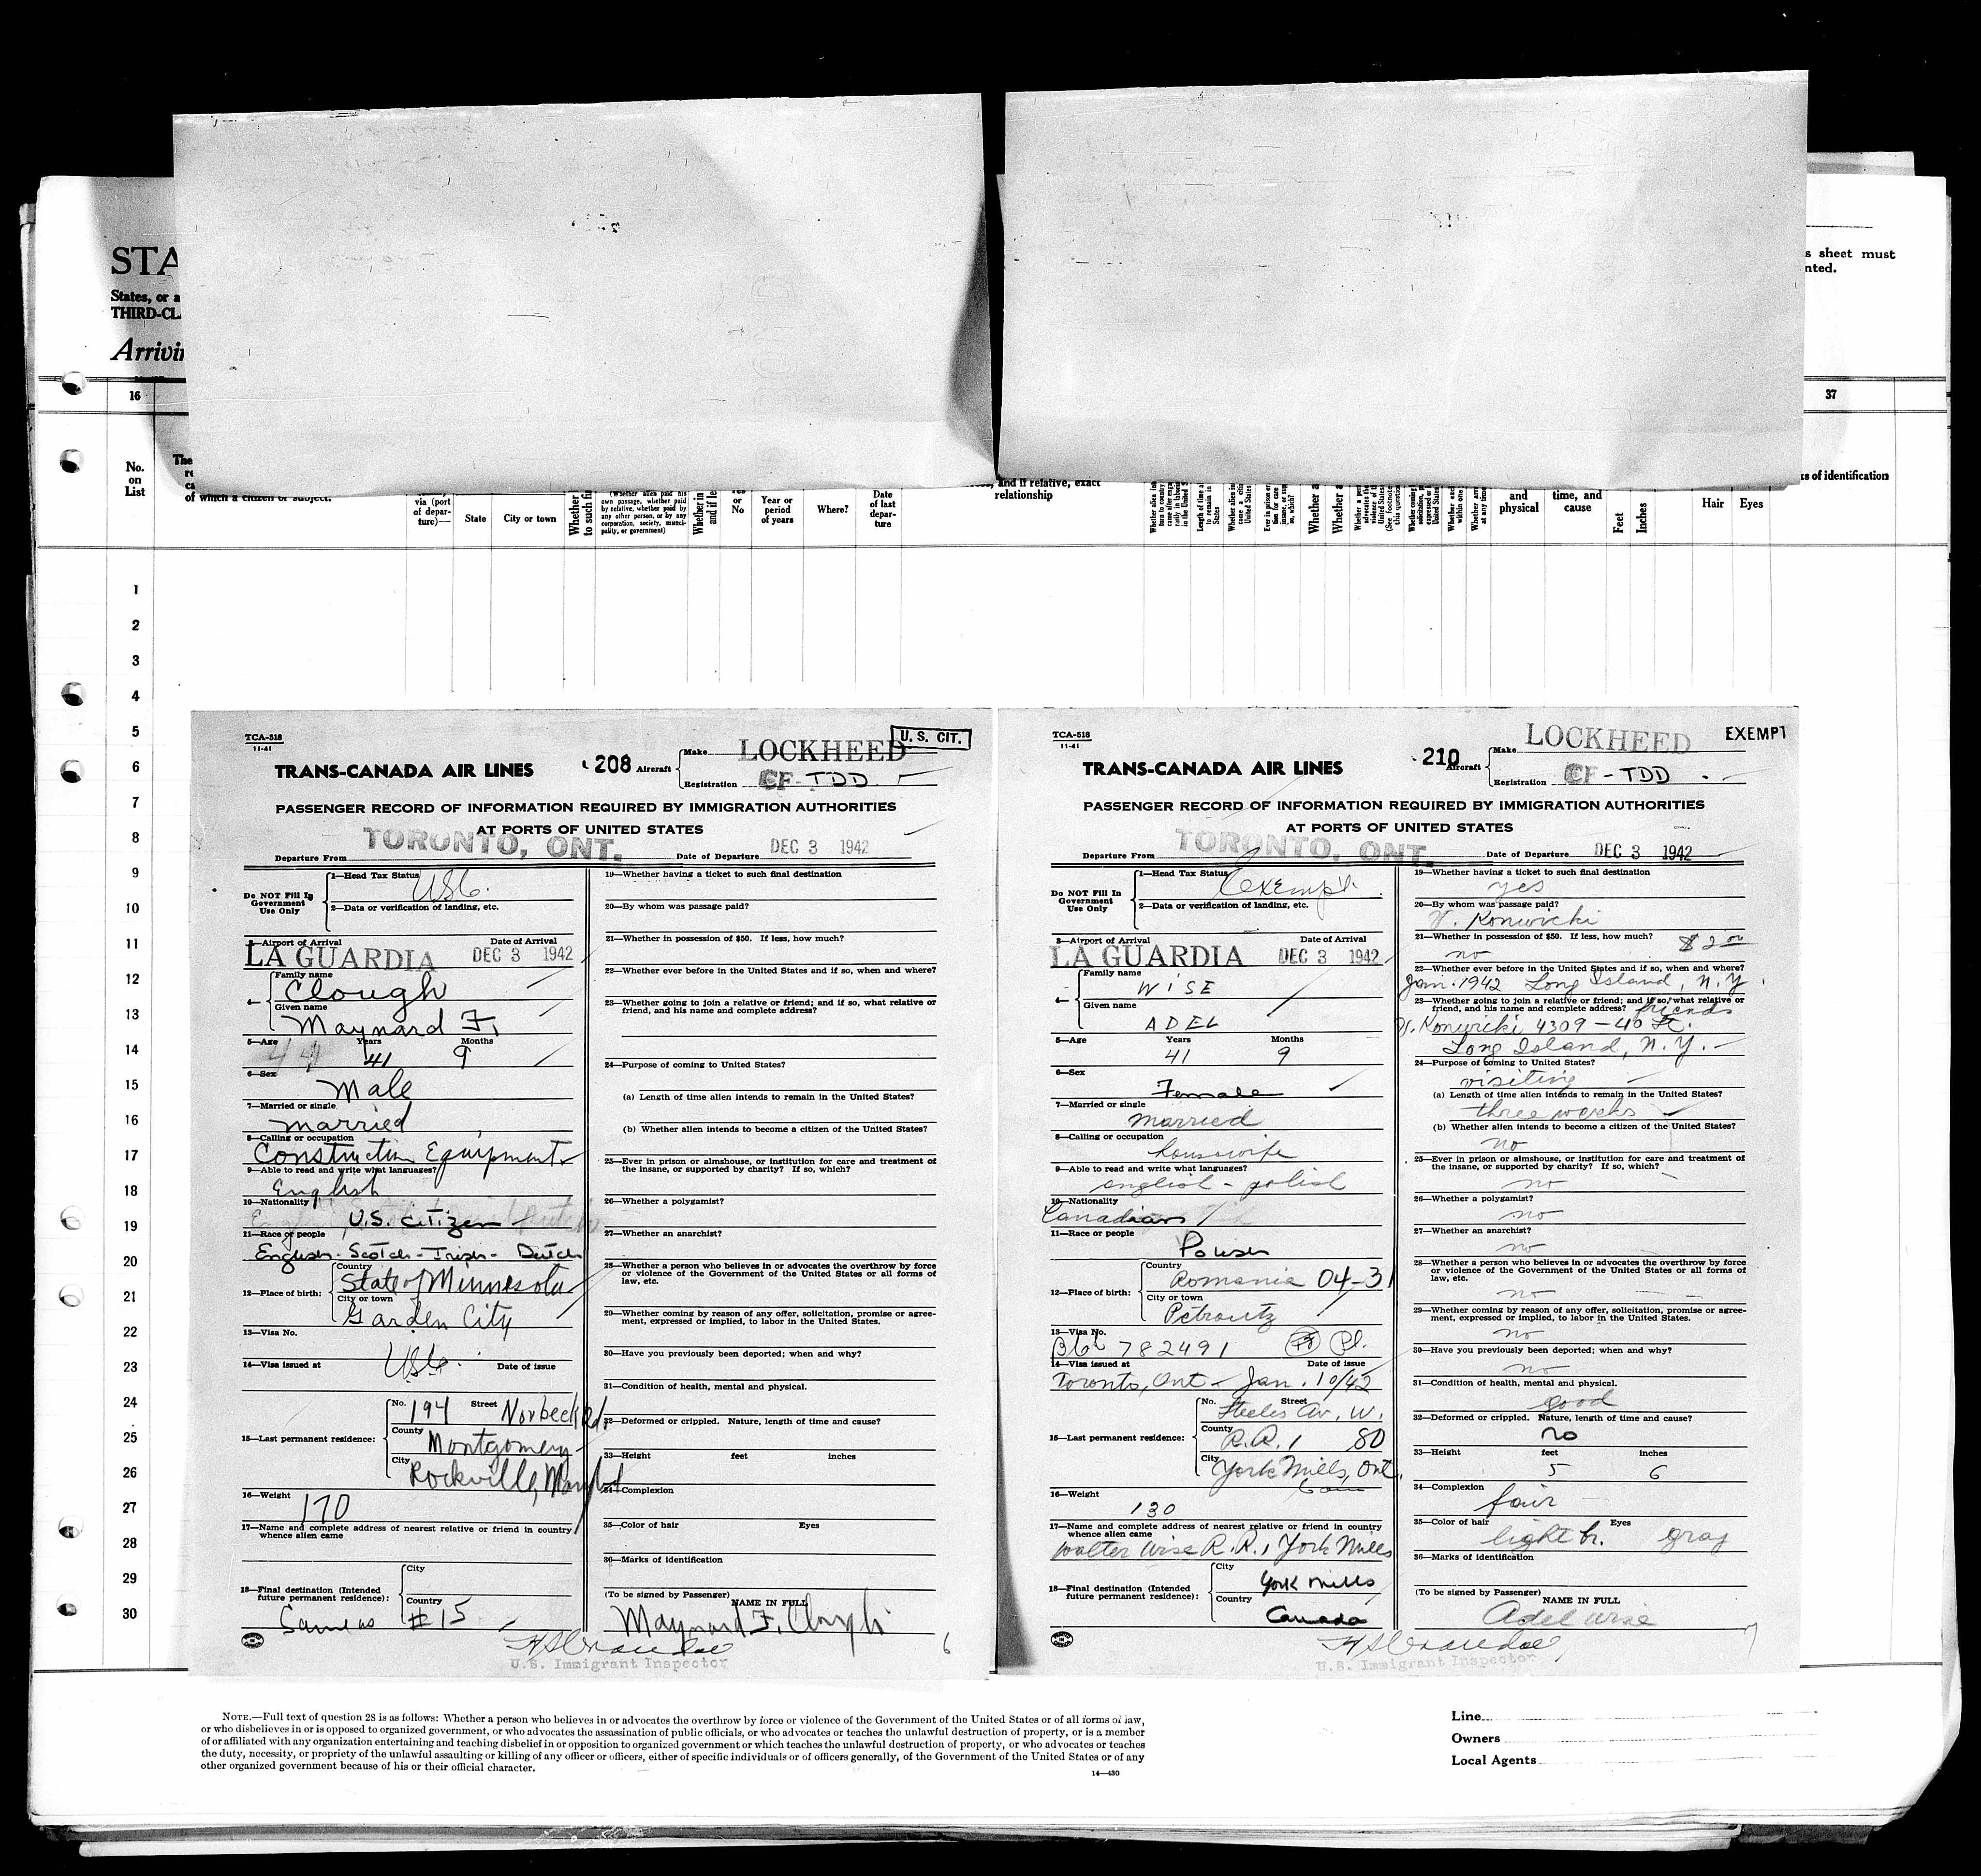 STA
States, or a
THIRD-CL
Arrivin
s sheet must
nted.
16
37
No.
on
List
The
re
ca
of which a citizen or subject.
via (port
of depar-
ture)—
State
City or town
Whether
to such fi
(Whether alien paid his
own passage, whether paid
by relative, whether paid by
any other person, or by any
corporation, society, munici-
pality, or government)
Whether in
and if le
Yes or
No
Year or
period
of years
Where?
Date
of last
depar-
ture
and if relative, exact
relationship
and
physical
time, and
cause
Feet
Inches
Hair
Eyes
ks of identification
1
2
3
4
5
6
7
8
9
10
11
12
13
14
15
16
17
18
19
20
21
22
23
24
25
26
27
28
29
30
TCA-518
11-41
U. S. CIT.
TRANS-CANADA AIR LINES
208
Aircraft
Make LOCKHEED
Registration CF-TDD
PASSENGER RECORD OF INFORMATION REQUIRED BY IMMIGRATION AUTHORITIES
AT PORTS OF UNITED STATES
Departure From TORONTO, ONT.
Date of Departure DEC 3 1942
Do NOT Fill In
Government
Use Only
1—Head Tax Status USC.
2—Data or verification of landing, etc.
3—Airport of Arrival Date of Arrival
LA GUARDIA DEC 3 1942
4—
Family name
Clough
Given name
Maynard F.
5—Age Years Months
41 9
6—Sex
Male
7—Married or single
married
8—Calling or occupation
Construction Equipment
9—Able to read and write what languages?
English
10—Nationality
U.S. Citizen
11—Race or people
English-Scotch-Irish-Dutch
12—Place of birth:
Country
State of Minnesota
City or town
Garden City
13—Visa No.
USC.
14—Visa issued at Date of issue
15—Last permanent residence:
No. 194 Street Norbeck Rd
County Montgomery
City Rockville, Maryland
16—Weight
170
17—Name and complete address of nearest relative or friend in country
whence alien came
18—Final destination (Intended
future permanent residence):
City
Country
Same as #15
19—Whether having a ticket to such final destination
20—By whom was passage paid?
21—Whether in possession of $50. If less, how much?
22—Whether ever before in the United States and if so, when and where?
23—Whether going to join a relative or friend; and if so, what relative or
friend, and his name and complete address?
24—Purpose of coming to United States?
(a) Length of time alien intends to remain in the United States?
(b) Whether alien intends to become a citizen of the United States?
25—Ever in prison or almshouse, or institution for care and treatment of
the insane, or supported by charity? If so, which?
26—Whether a polygamist?
27—Whether an anarchist?
28—Whether a person who believes in or advocates the overthrow by force
or violence of the Government of the United States or all forms of
law, etc.
29—Whether coming by reason of any offer, solicitation, promise or agree-
ment, expressed or implied, to labor in the United States.
30—Have you previously been deported; when and why?
31—Condition of health, mental and physical.
32—Deformed or crippled. Nature, length of time and cause?
33—Height feet inches
34—Complexion
35—Color of hair Eyes
36—Marks of identification
(To be signed by Passenger)
NAME IN FULL
Maynard F. Clough
U.S. Immigrant Inspector
6
TCA-518
11-41
EXEMPT
TRANS-CANADA AIR LINES
210
Aircraft
Make LOCKHEED
Registration CF-TDD
PASSENGER RECORD OF INFORMATION REQUIRED BY IMMIGRATION AUTHORITIES
AT PORTS OF UNITED STATES
Departure From TORONTO, ONT.
Date of Departure DEC 3 1942
Do NOT Fill In
Government
Use Only
1—Head Tax Status Exempt
2—Data or verification of landing, etc.
3—Airport of Arrival Date of Arrival
LA GUARDIA DEC 3 1942
4—
Family name
WISE
Given name
ADEL
5—Age Years Months
41 9
6—Sex
Female
7—Married or single
married
8—Calling or occupation
housewife
9—Able to read and write what languages?
english - polish
10—Nationality
Canadian
11—Race or people
Polish
12—Place of birth:
Country
Romania 04-31
City or town
Petroutz
13—Visa No.
782491
14—Visa issued at Date of issue
Toronto, Ont - Jan. 10/42
15—Last permanent residence:
No. Street
Steeles Av. W.
County R.R. 1 80
City York Mills, Ont.
Can
16—Weight
130
17—Name and complete address of nearest relative or friend in country
whence alien came
Walter Wise R.R. 1 York Mills
18—Final destination (Intended
future permanent residence):
City
York Mills
Country
Canada
19—Whether having a ticket to such final destination
yes
20—By whom was passage paid?
V. Konwicki
21—Whether in possession of $50. If less, how much?
no $2 00
22—Whether ever before in the United States and if so, when and where?
Jan. 1942 Long Island, N.Y.
23—Whether going to join a relative or friend; and if so, what relative or
friend, and his name and complete address? friends
V. Konwicki 4309-40 St.
Long Island, N.Y.
24—Purpose of coming to United States?
visiting
(a) Length of time alien intends to remain in the United States?
three weeks
(b) Whether alien intends to become a citizen of the United States?
no
25—Ever in prison or almshouse, or institution for care and treatment of
the insane, or supported by charity? If so, which?
no
26—Whether a polygamist?
no
27—Whether an anarchist?
no
28—Whether a person who believes in or advocates the overthrow by force
or violence of the Government of the United States or all forms of
law, etc.
no
29—Whether coming by reason of any offer, solicitation, promise or agree-
ment, expressed or implied, to labor in the United States.
no
30—Have you previously been deported; when and why?
no
31—Condition of health, mental and physical.
good
32—Deformed or crippled. Nature, length of time and cause?
no
33—Height feet inches
5 6
34—Complexion
fair
35—Color of hair Eyes
light br. gray
36—Marks of identification
(To be signed by Passenger)
NAME IN FULL
Adel Wise
U.S. Immigrant Inspector
7
NOTE.—Full text of question 28 is as follows: Whether a person who believes in or advocates the overthrow by force or violence of the Government of the United States or of all forms of law,
or who disbelieves in or is opposed to organized government, or who advocates the assassination of public officials, or who advocates or teaches the unlawful destruction of property, or is a member
of or affiliated with any organization entertaining and teaching disbelief in or opposition to organized government or which teaches the unlawful destruction of property, or who advocates or teaches
the duty, necessity, or propriety of the unlawful assaulting or killing of any officer or officers, either of specific individuals or of officers generally, of the Government of the United States or of any
other organized government because of his or their official character.
14—430
Line
Owners
Local Agents